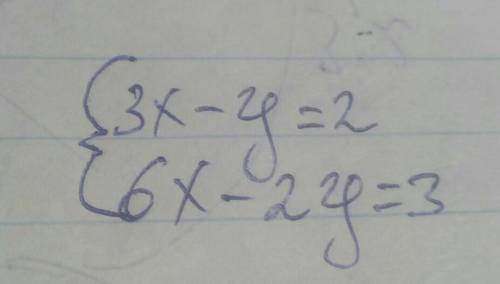 3x-y=2
6x-2y=3